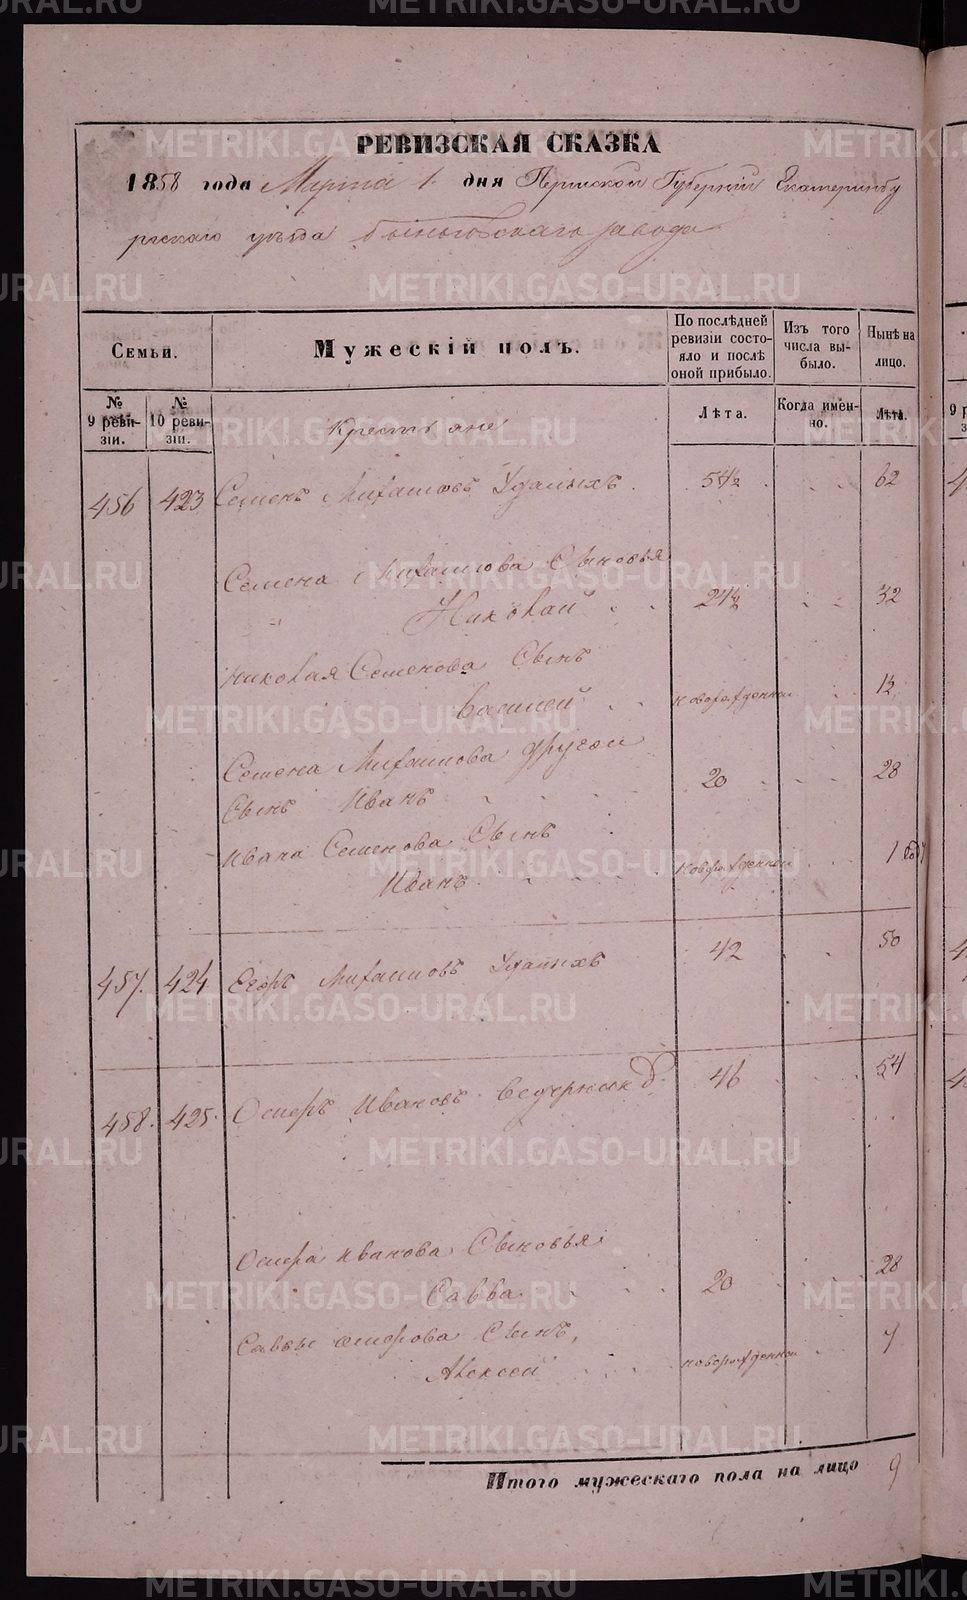 РЕВИЗСКАЯ СКАЗКА
1858 года Марта 1 дня Пермской Губернии Екатеринбу
ргскаго уѣзда Быньговскаго завода
Семьи.
Мужескій полъ.
По послѣдней ревизіи состояло и послѣ оной прибыло.
Изъ того числа выбыло.
Нынѣ на лицо.
№ 9 ревизіи.
№ 10 ревизіи.
Лѣта.
Когда именно.
Лѣта.
Крестьяне
456 423 Семенъ Михаиловъ Удалыхъ 54½ 62
Семена Михаилова Сыновья
Николай 24½ 32
Николая Семенова Сынъ
Василей новорожденной 1½
Семена Михаилова другой
Сынъ Иванъ 20 28
Ивана Семенова Сынъ
Иванъ новорожденной 1 год
457. 424 Егоръ Михаиловъ Удалыхъ 42 50
458. 425. Осипъ Ивановъ 46 54
Иванова Сыновья
Савва 20 28
Саввы Сынъ
Алексей новорожденной 7
Итого мужескаго пола на лицо 9
METRIKI.GASO-URAL.RU